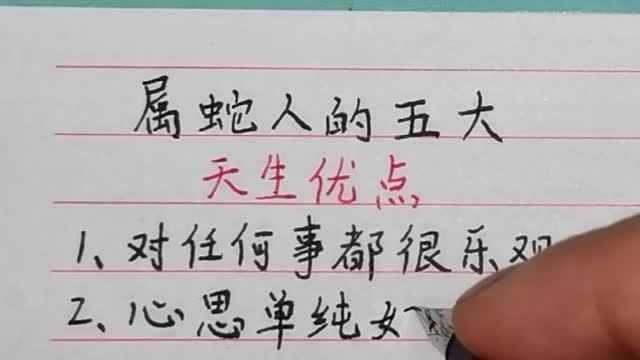 属蛇人的五大
天生优点
1、对任何事都很乐观
2、心思单纯